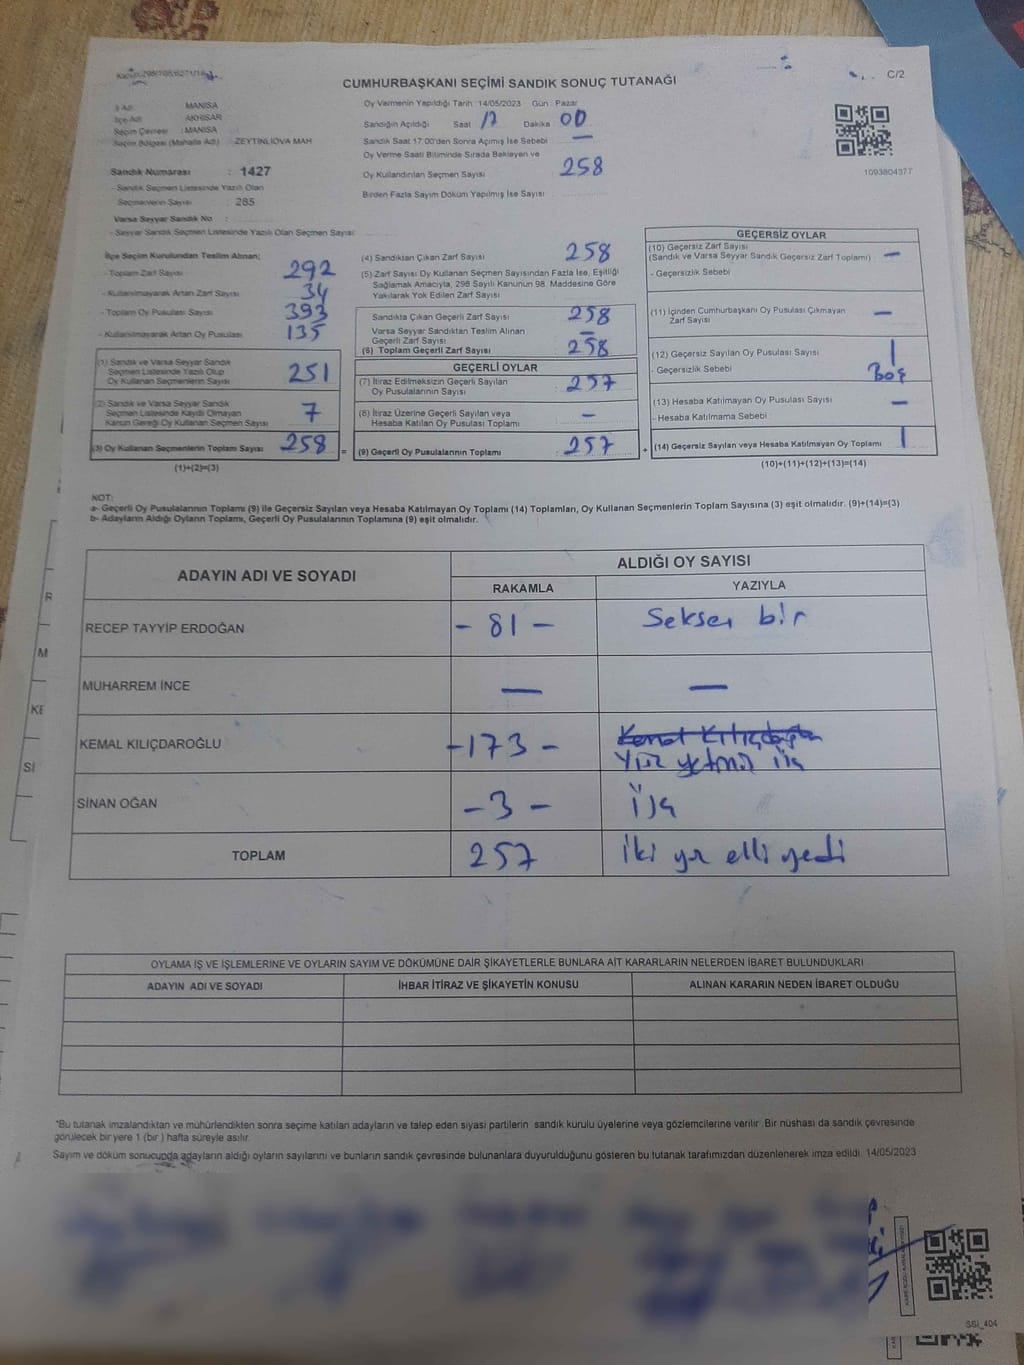 C/2
CUMHURBAŞKANI SEÇİMİ SANDIK SONUÇ TUTANAĞI
İl Adı : MANİSA
İlçe Adı : AKHİSAR
Seçim Çevresi : MANİSA
Seçim Bölgesi (Mahalle Adı) : ZEYTİNLİOVA MAH
Sandık Numarası : 1427
- Sandık Seçmen Listesinde Yazılı Olan
Seçmenlerin Sayısı : 285
Varsa Seyyar Sandık No :
- Seyyar Sandık Seçmen Listesinde Yazılı Olan Seçmen Sayısı
Oy Vermenin Yapıldığı Tarih : 14/05/2023 Gün : Pazar
Sandığın Açıldığı Saat 17 Dakika 00
Sandık Saat 17.00'den Sonra Açımış İse Sebebi —
Oy Verme Saati Bitiminde Sırada Bekleyen ve
Oy Kullandırılan Seçmen Sayısı 258
Birden Fazla Sayım Döküm Yapılmış İse Sayısı
1093804377
İlçe Seçim Kurulundan Teslim Alınan;
- Toplam Zarf Sayısı : 292
- Kullanılmayarak Artan Zarf Sayısı : 34
- Toplam Oy Pusulası Sayısı : 393
- Kullanılmayarak Artan Oy Pusulası : 135
(1) Sandık ve Varsa Seyyar Sandık
Seçmen Listesinde Yazılı Olup
Oy Kullanan Seçmenlerin Sayısı : 251
(2) Sandık ve Varsa Seyyar Sandık
Seçmen Listesinde Kaydı Olmayan
Kanun Gereği Oy Kullanan Seçmen Sayısı : 7
(3) Oy Kullanan Seçmenlerin Toplam Sayısı : 258
(1)+(2)=(3)
(4) Sandıktan Çıkan Zarf Sayısı : 258
(5) Zarf Sayısı Oy Kullanan Seçmen Sayısından Fazla İse, Eşitliği
Sağlamak Amacıyla, 298 Sayılı Kanunun 98. Maddesine Göre
Yakılarak Yok Edilen Zarf Sayısı :
Sandıkta Çıkan Geçerli Zarf Sayısı : 258
Varsa Seyyar Sandıktan Teslim Alınan
Geçerli Zarf Sayısı : —
(6) Toplam Geçerli Zarf Sayısı : 258
GEÇERLİ OYLAR
(7) İtiraz Edilmeksizin Geçerli Sayılan
Oy Pusulalarının Sayısı : 257
(8) İtiraz Üzerine Geçerli Sayılan veya
Hesaba Katılan Oy Pusulası Toplamı : —
= (9) Geçerli Oy Pusulalarının Toplamı : 257
GEÇERSİZ OYLAR
(10) Geçersiz Zarf Sayısı
(Sandık ve Varsa Seyyar Sandık Geçersiz Zarf Toplamı) : —
- Geçersizlik Sebebi
(11) İçinden Cumhurbaşkanı Oy Pusulası Çıkmayan
Zarf Sayısı : —
(12) Geçersiz Sayılan Oy Pusulası Sayısı : 1
- Geçersizlik Sebebi Boş
(13) Hesaba Katılmayan Oy Pusulası Sayısı : —
- Hesaba Katılmama Sebebi
+ (14) Geçersiz Sayılan veya Hesaba Katılmayan Oy Toplamı 1
(10)+(11)+(12)+(13)=(14)
NOT:
a- Geçerli Oy Pusulalarının Toplamı (9) ile Geçersiz Sayılan veya Hesaba Katılmayan Oy Toplamı (14) Toplamları, Oy Kullanan Seçmenlerin Toplam Sayısına (3) eşit olmalıdır. (9)+(14)=(3)
b- Adayların Aldığı Oyların Toplamı, Geçerli Oy Pusulalarının Toplamına (9) eşit olmalıdır.
ADAYIN ADI VE SOYADI ALDIĞI OY SAYISI
RAKAMLA YAZIYLA
RECEP TAYYİP ERDOĞAN - 81 - Seksen bir
MUHARREM İNCE — —
KEMAL KILIÇDAROĞLU -173- Kemal Kılıçdaroğlu
Yüz yetmiş üç
SİNAN OĞAN -3- Üç
TOPLAM 257 İki yüz elli yedi
OYLAMA İŞ VE İŞLEMLERİNE VE OYLARIN SAYIM VE DÖKÜMÜNE DAİR ŞİKAYETLERLE BUNLARA AİT KARARLARIN NELERDEN İBARET BULUNDUKLARI
ADAYIN ADI VE SOYADI İHBAR İTİRAZ VE ŞİKAYETİN KONUSU ALINAN KARARIN NEDEN İBARET OLDUĞU
*Bu tutanak imzalandıktan ve mühürlendikten sonra seçime katılan adayların ve talep eden siyasi partilerin sandık kurulu üyelerine veya gözlemcilerine verilir. Bir nüshası da sandık çevresinde
görülecek bir yere 1 (bir ) hafta süreyle asılır.
Sayım ve döküm sonucunda adayların aldığı oyların sayılarını ve bunların sandık çevresinde bulunanlara duyurulduğunu gösteren bu tutanak tarafımızdan düzenlenerek imza edildi. 14/05/2023
SSI_404